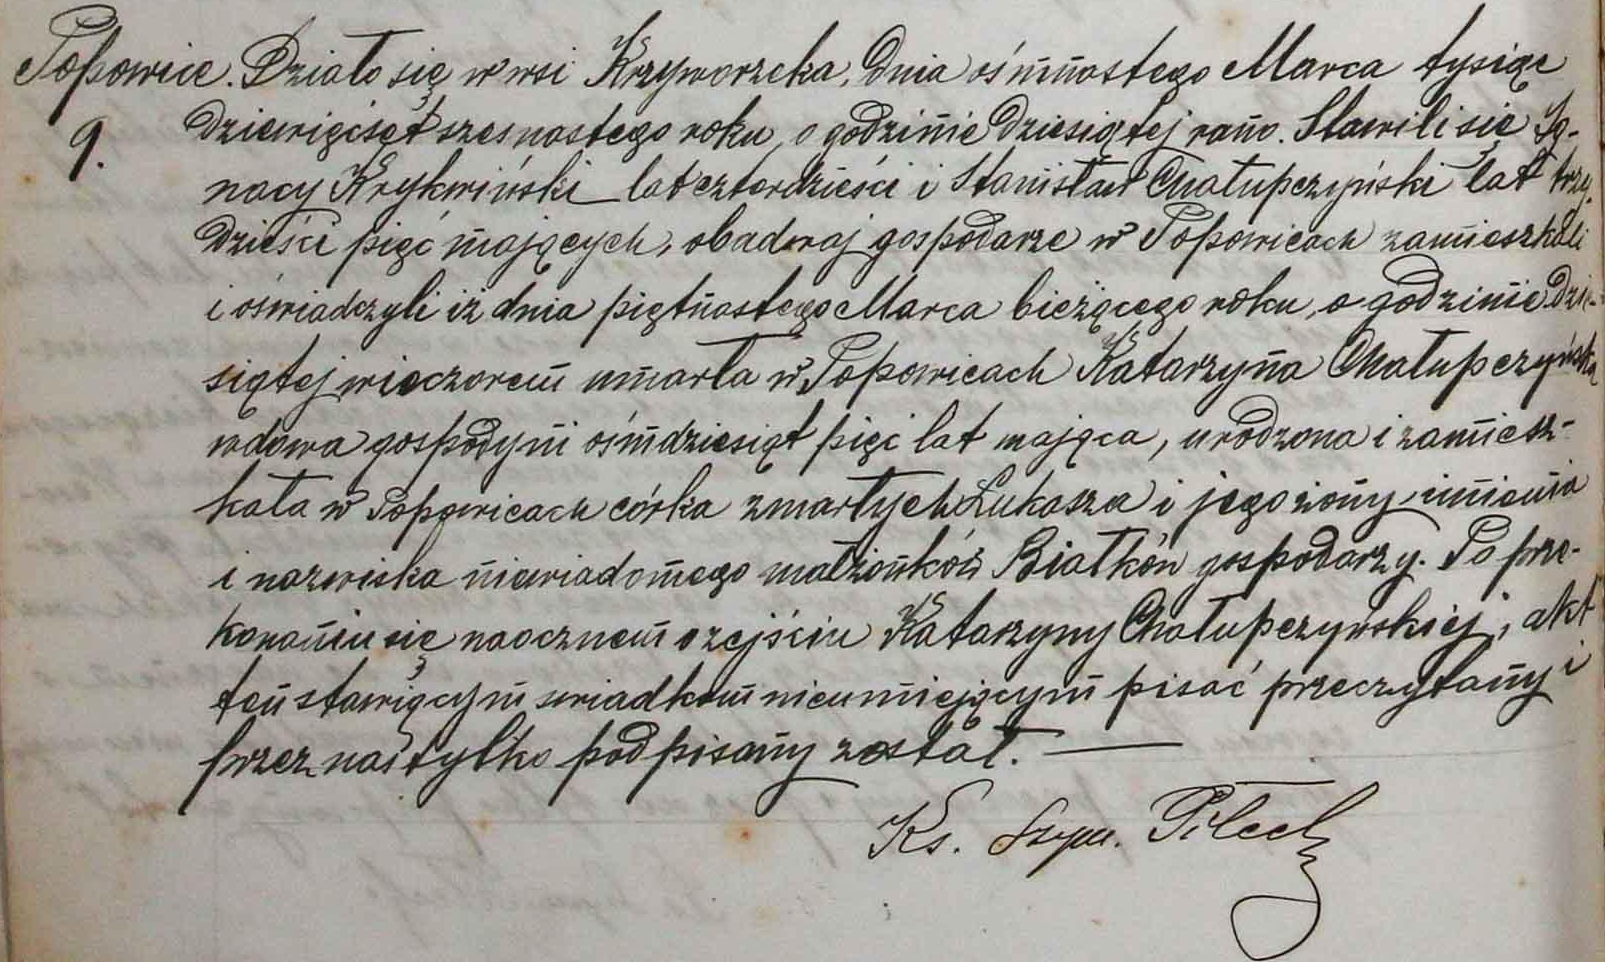 Popowice. Działo się w wsi Krzyworzeka, dnia ośmnastego Marca tysiąc
9. dziewięćset szesnastego roku, o godzinie dziesiątej rano. Stawili się Ig-
nacy Krykwiński lat czterdzieści i Stanisław Chałupczyński lat trzy-
dzieści pięć mających, obadwaj gospodarze w Popowicach zamieszkali
i oświadczyli iż dnia piętnastego Marca bieżącego roku, o godzinie dzie-
siątej wieczorem umarła w Popowicach Katarzyna Chałupczyńska
wdowa gospodyni ośmdziesiąt pięć lat mająca, urodzona i zamiesz-
kała w Popowicach córka zmarłych Łukasza i jego żony imienia
i nazwiska niewiadomego małżonków Białków gospodarzy. Po prze-
konaniu się naocznem o zejściu Katarzyny Chałupczyńskiej, akt
ten stawiącym swiadkom nieumiejącym pisać przeczytany i
przez nas tylko podpisany został.
Ks. Szym. Pilech